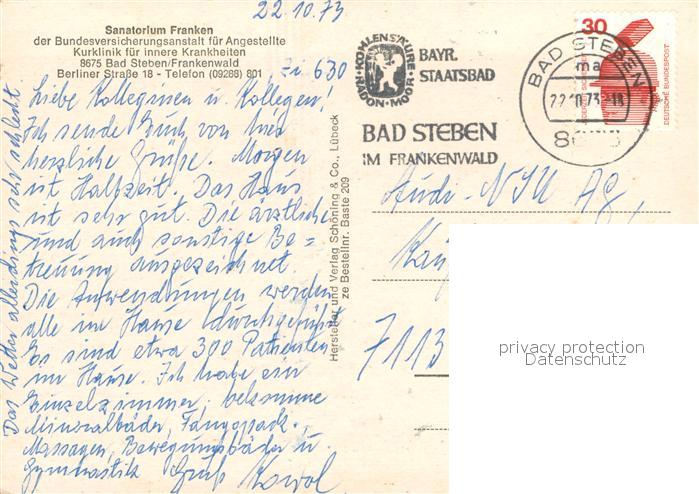 22.10.73
Sanatorium Franken
der Bundesversicherungsanstalt für Angestellte
Kurklinik für innere Krankheiten
8675 Bad Steben/Frankenwald
Berliner Straße 18 - Telefon (09288) 801
Zi 630
Liebe Kolleginen u. Kollegen!
Ich sende Euch von hier
herzliche Grüße. Morgen
ist Halbzeit. Das Haus
ist sehr gut. Die ärztliche
und auch sonstige Be=
treuung ausgezeichnet.
Die Anwendungen werden
alle im Hause durchgeführt
Es sind etwa 300 Patienten
im Hause. Ich habe ein
Einzelzimmer, bekomme
Mineralbäder, Fangopack.
Massagen, Bewegungsbäder u.
Gymnastik Gruß Kowol
Das Wetter allerdings sehr schlecht
Hersteller und Verlag Schöning & Co., Lübeck
ze Bestellnr. Baste 209
KOHLENSÄURE
RADON · MOOR
BAYR.
STAATSBAD
BAD STEBEN
IM FRANKENWALD
BAD STEBEN
ma
22.10.73-18
30
DEUTSCHE BUNDESPOST
Audi-NSU AG
7113
privacy protection
Datenschutz